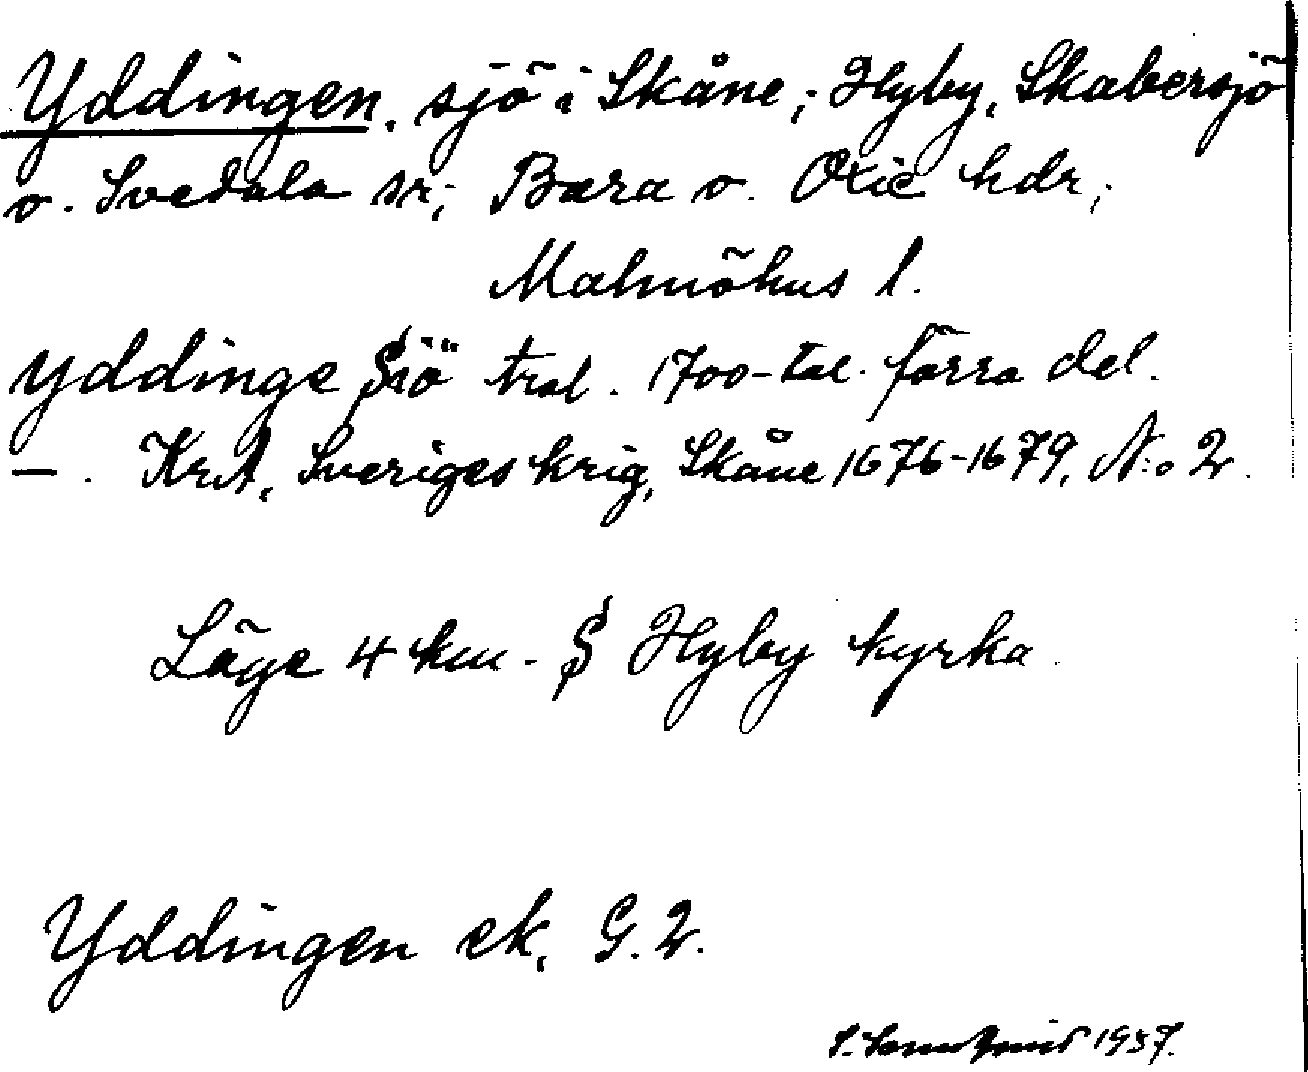 Yddingen, sjö i Skåne; Hyby, Skabersjö
o. Svedala sr; Bara o. Oxie hdr;
Malmöhus l.
Yddinge Siö trol. 1700-tal. förra del.
— . KrA, Sveriges krig, Skåne 1676-1679, N:o 2.
Läge 4 km. S Hyby kyrka.
Yddingen ek. G. 2.
1937.